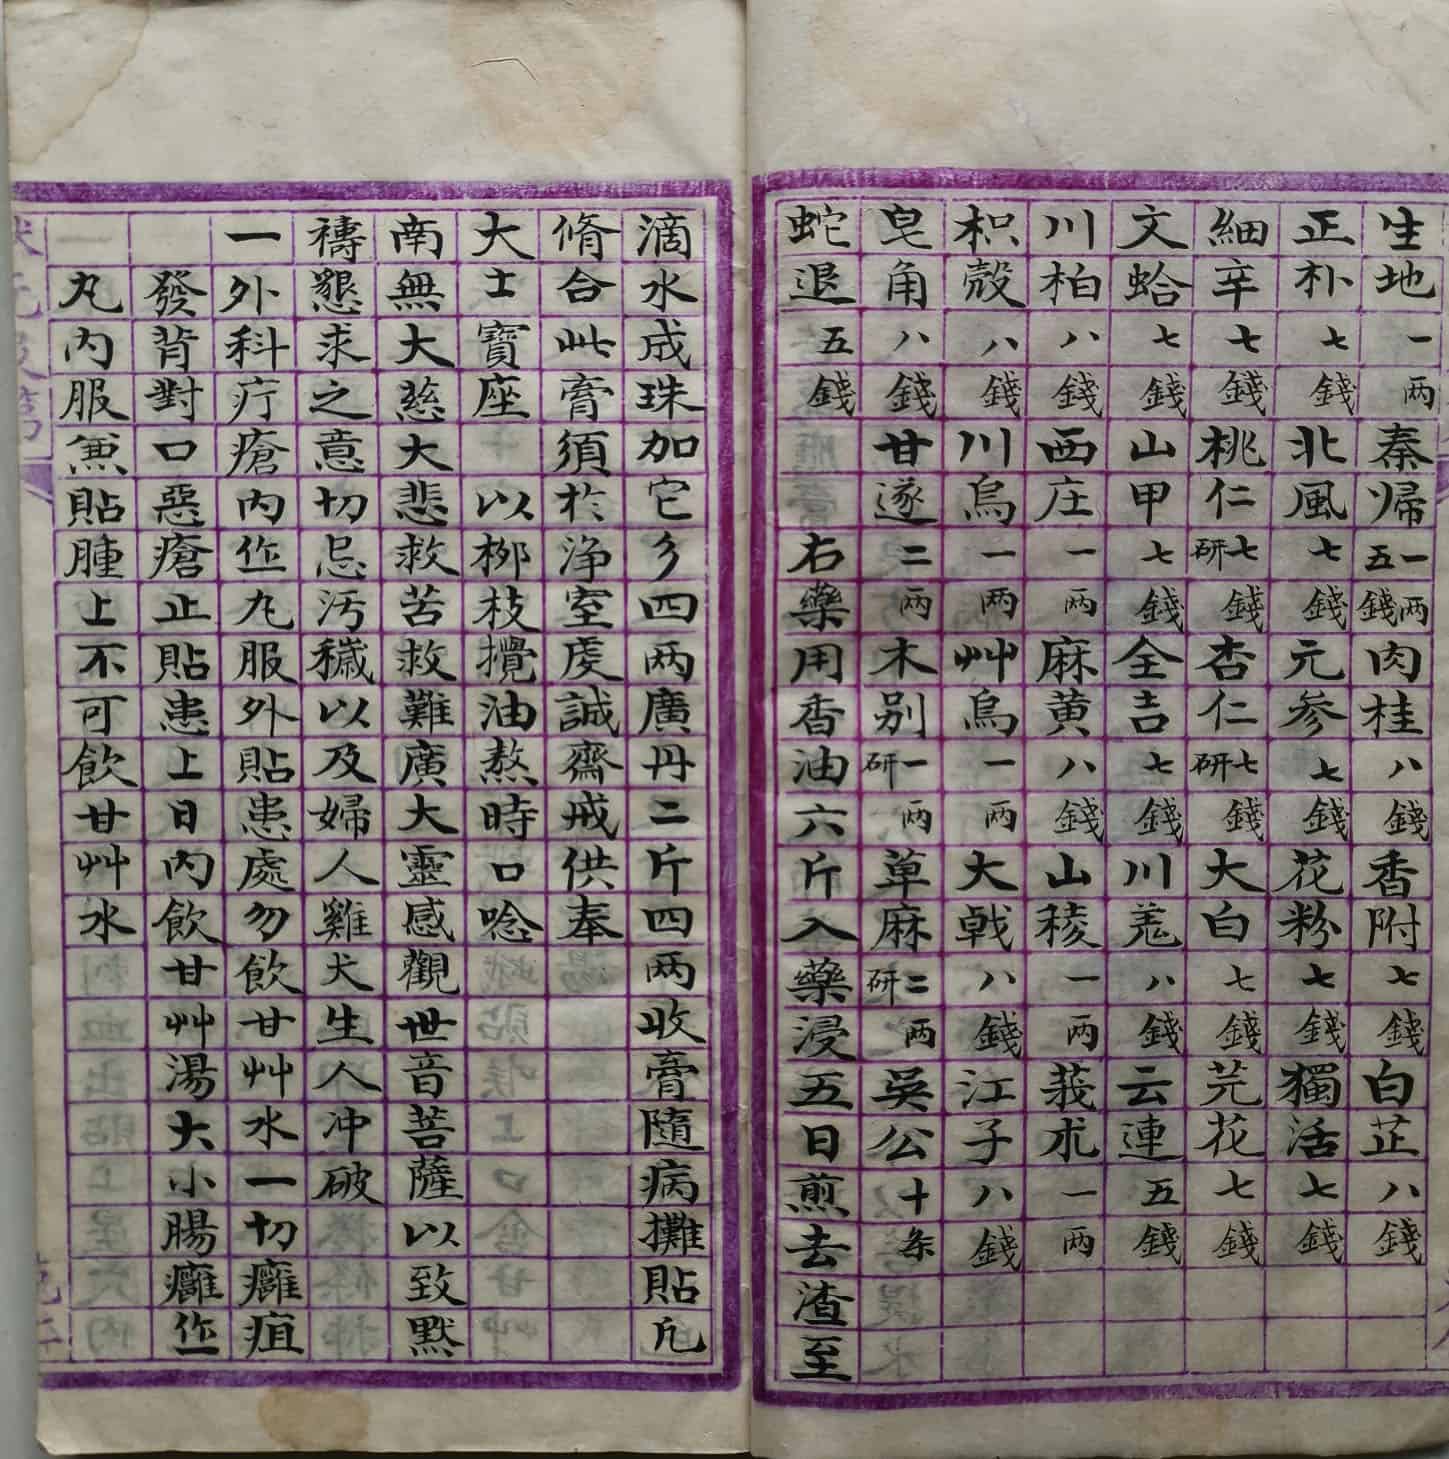 生地一两秦歸一两五錢肉桂八錢香附七錢白芷八錢
正朴七錢北風七錢元参七錢花粉七錢獨活七錢
細辛七錢桃仁研七錢杏仁研七錢大白七錢芫花七錢
文蛤七錢山甲七錢全吉七錢川羗八錢云連五錢
川柏八錢西庄一两麻黄八錢山稜一两莪朮一两
枳殼八錢川烏一两艸烏一两大戟八錢江子八錢
皂角八錢甘遂二两木别研一两草麻研二两吳公十条
蛇退五錢右藥用香油六斤入藥浸五日煎去渣至
滴水成珠加它彡四两廣丹二斤四两收膏隨病攤貼凢
脩合此膏須於淨室虔誠齋戒供奉
大士寶座以柳枝攪油熬時口唸
南無大慈大悲救苦救難廣大靈感觀世音菩薩以致默
禱懇求之意切忌汚穢以及婦人雞犬生人冲破
一外科疔瘡内作丸服外貼患處勿飲甘艸水一切癰疽
發背對口惡瘡止貼患上日内飲甘艸湯大小腸癰作
丸内服兼貼腫上不可飲甘艸水